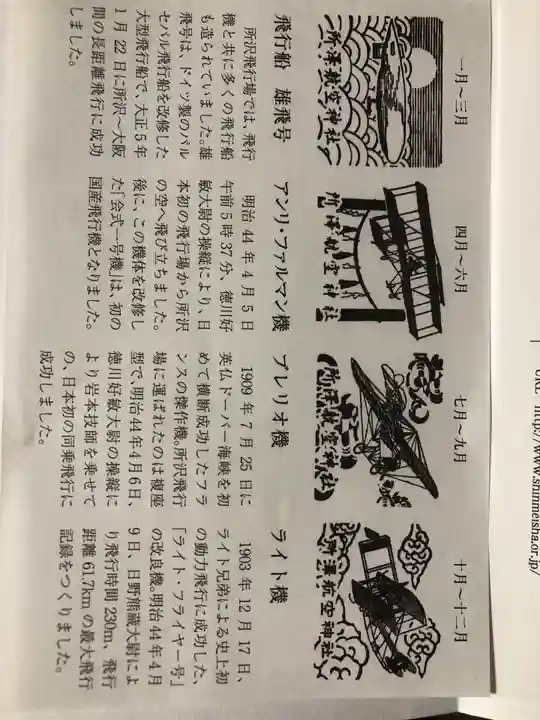 URL http://www.shinmeisha.or.jp/
一月～三月
所澤航空神社
飛行船　雄飛号
所沢飛行場では、飛行
機と共に多くの飛行船
も造られていました。雄
飛号は、ドイツ製のパル
セバル飛行船を改修した
大型飛行船で、大正5年
1月22日に所沢～大阪
間の長距離飛行に成功
しました。
四月～六月
所澤航空神社
アンリ・ファルマン機
明治44年4月5日
午前5時37分、徳川好
敏大尉の操縦により、日
本初の飛行場から所沢
の空へ飛び立ちました。
後に、この機体を改修し
た「会式一号機」は、初の
国産飛行機となりました。
七月～九月
所澤航空神社
ブレリオ機
1909年7月25日に
英仏ドーバー海峡を初
めて横断成功したフラ
ンスの傑作機。所沢飛行
場に運ばれたのは複座
型で、明治44年4月6日、
徳川好敏大尉の操縦に
より岩本技師を乗せて
の、日本初の同乗飛行に
成功しました。
十月～十二月
所澤航空神社
ライト機
1903年12月17日、
ライト兄弟による史上初
の動力飛行に成功した、
「ライト・フライヤー号」
の改良機。明治44年4月
9日、日野熊蔵大尉によ
り飛行時間230m、飛行
距離61.7kmの最大飛行
記録をつくりました。